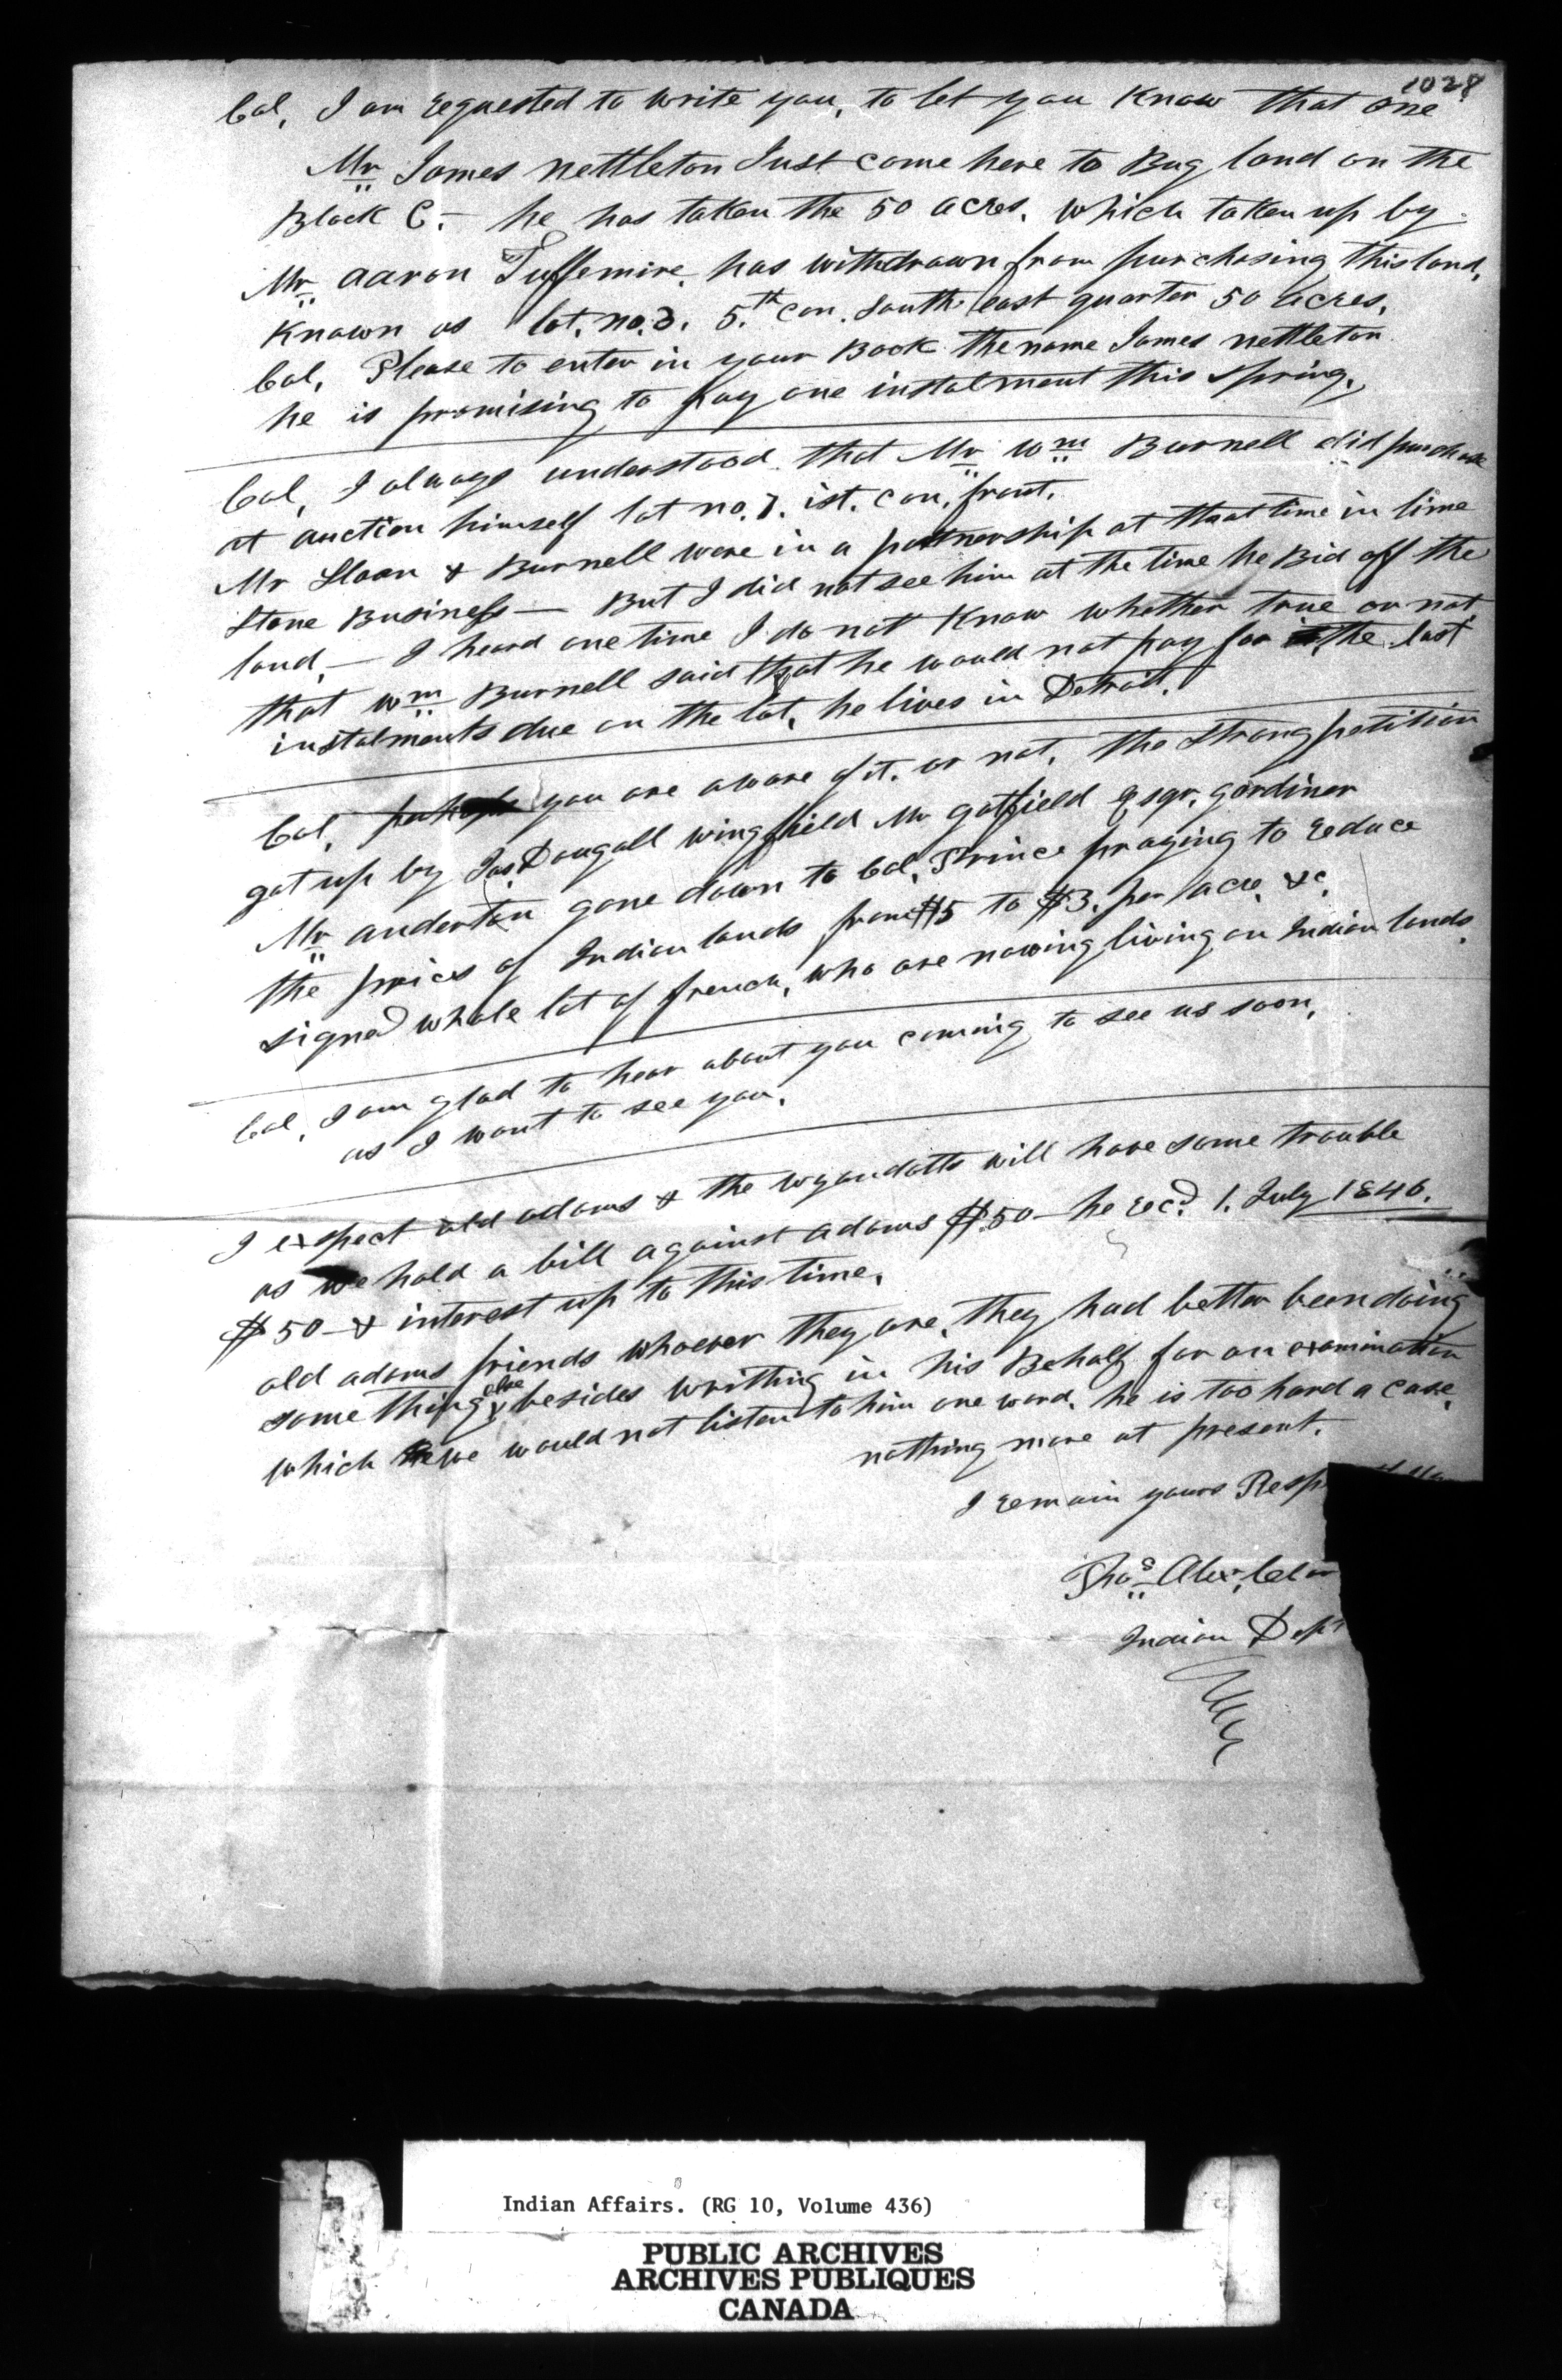 1028
Col, I am requested to write you, to let you know that one
Mr James nettleton Just come here to Buy land on the
Block C. - he has taken the 50 acres. which taken up by
Mr aaron Tuffemire, has withdrawn from purchasing this land,
known as lot. no. 3. 5.th con. South east quarter 50 acres.
Col, Please to enter in your Book the name James nettleton
he is promising to pay one instalment this spring,
Col, I always understood that Mr Wm Burnell did purchase
at auction himself lot no. 7. ist. con. front.
Mr Sloan & Burnell were in a partnership at that time in lime
Stone Business — But I did not see him at the time he Bid off the
land, — I heard one time I do not know whether true or not
that Wm Burnell said that he would not pay for the last
instalments due on the lot, he lives in Detroit.
Col, perhaps you are aware of it. or not, the Strong petition
got up by Jas Dougall wingfield Mr gatfield Esqr. gardiner
Mr anderton gone down to Col, Prince praying to reduce
the prices of Indian lands from $5 to $3. per acre. &c.
signed whole lot of french, who are nowing living on Indian lands.
Col, I am glad to hear about you coming to see us soon,
as I want to see you.
I expect old adams & the wyandotts will have some trouble
as we hold a bill against adams $50 - he recd 1. July 1846.
$50 - & interest up to this time.
old adams friends whoever they are, they had better been doing
some thing else besides writting in his Behalf for an examination
which we would not listen to him one word. he is too hard a case,
nothing more at present.
I remain yours Resp
Thos Alex. Clar
Indian Dept
Indian Affairs. (RG 10, Volume 436)
PUBLIC ARCHIVES
ARCHIVES PUBLIQUES
CANADA